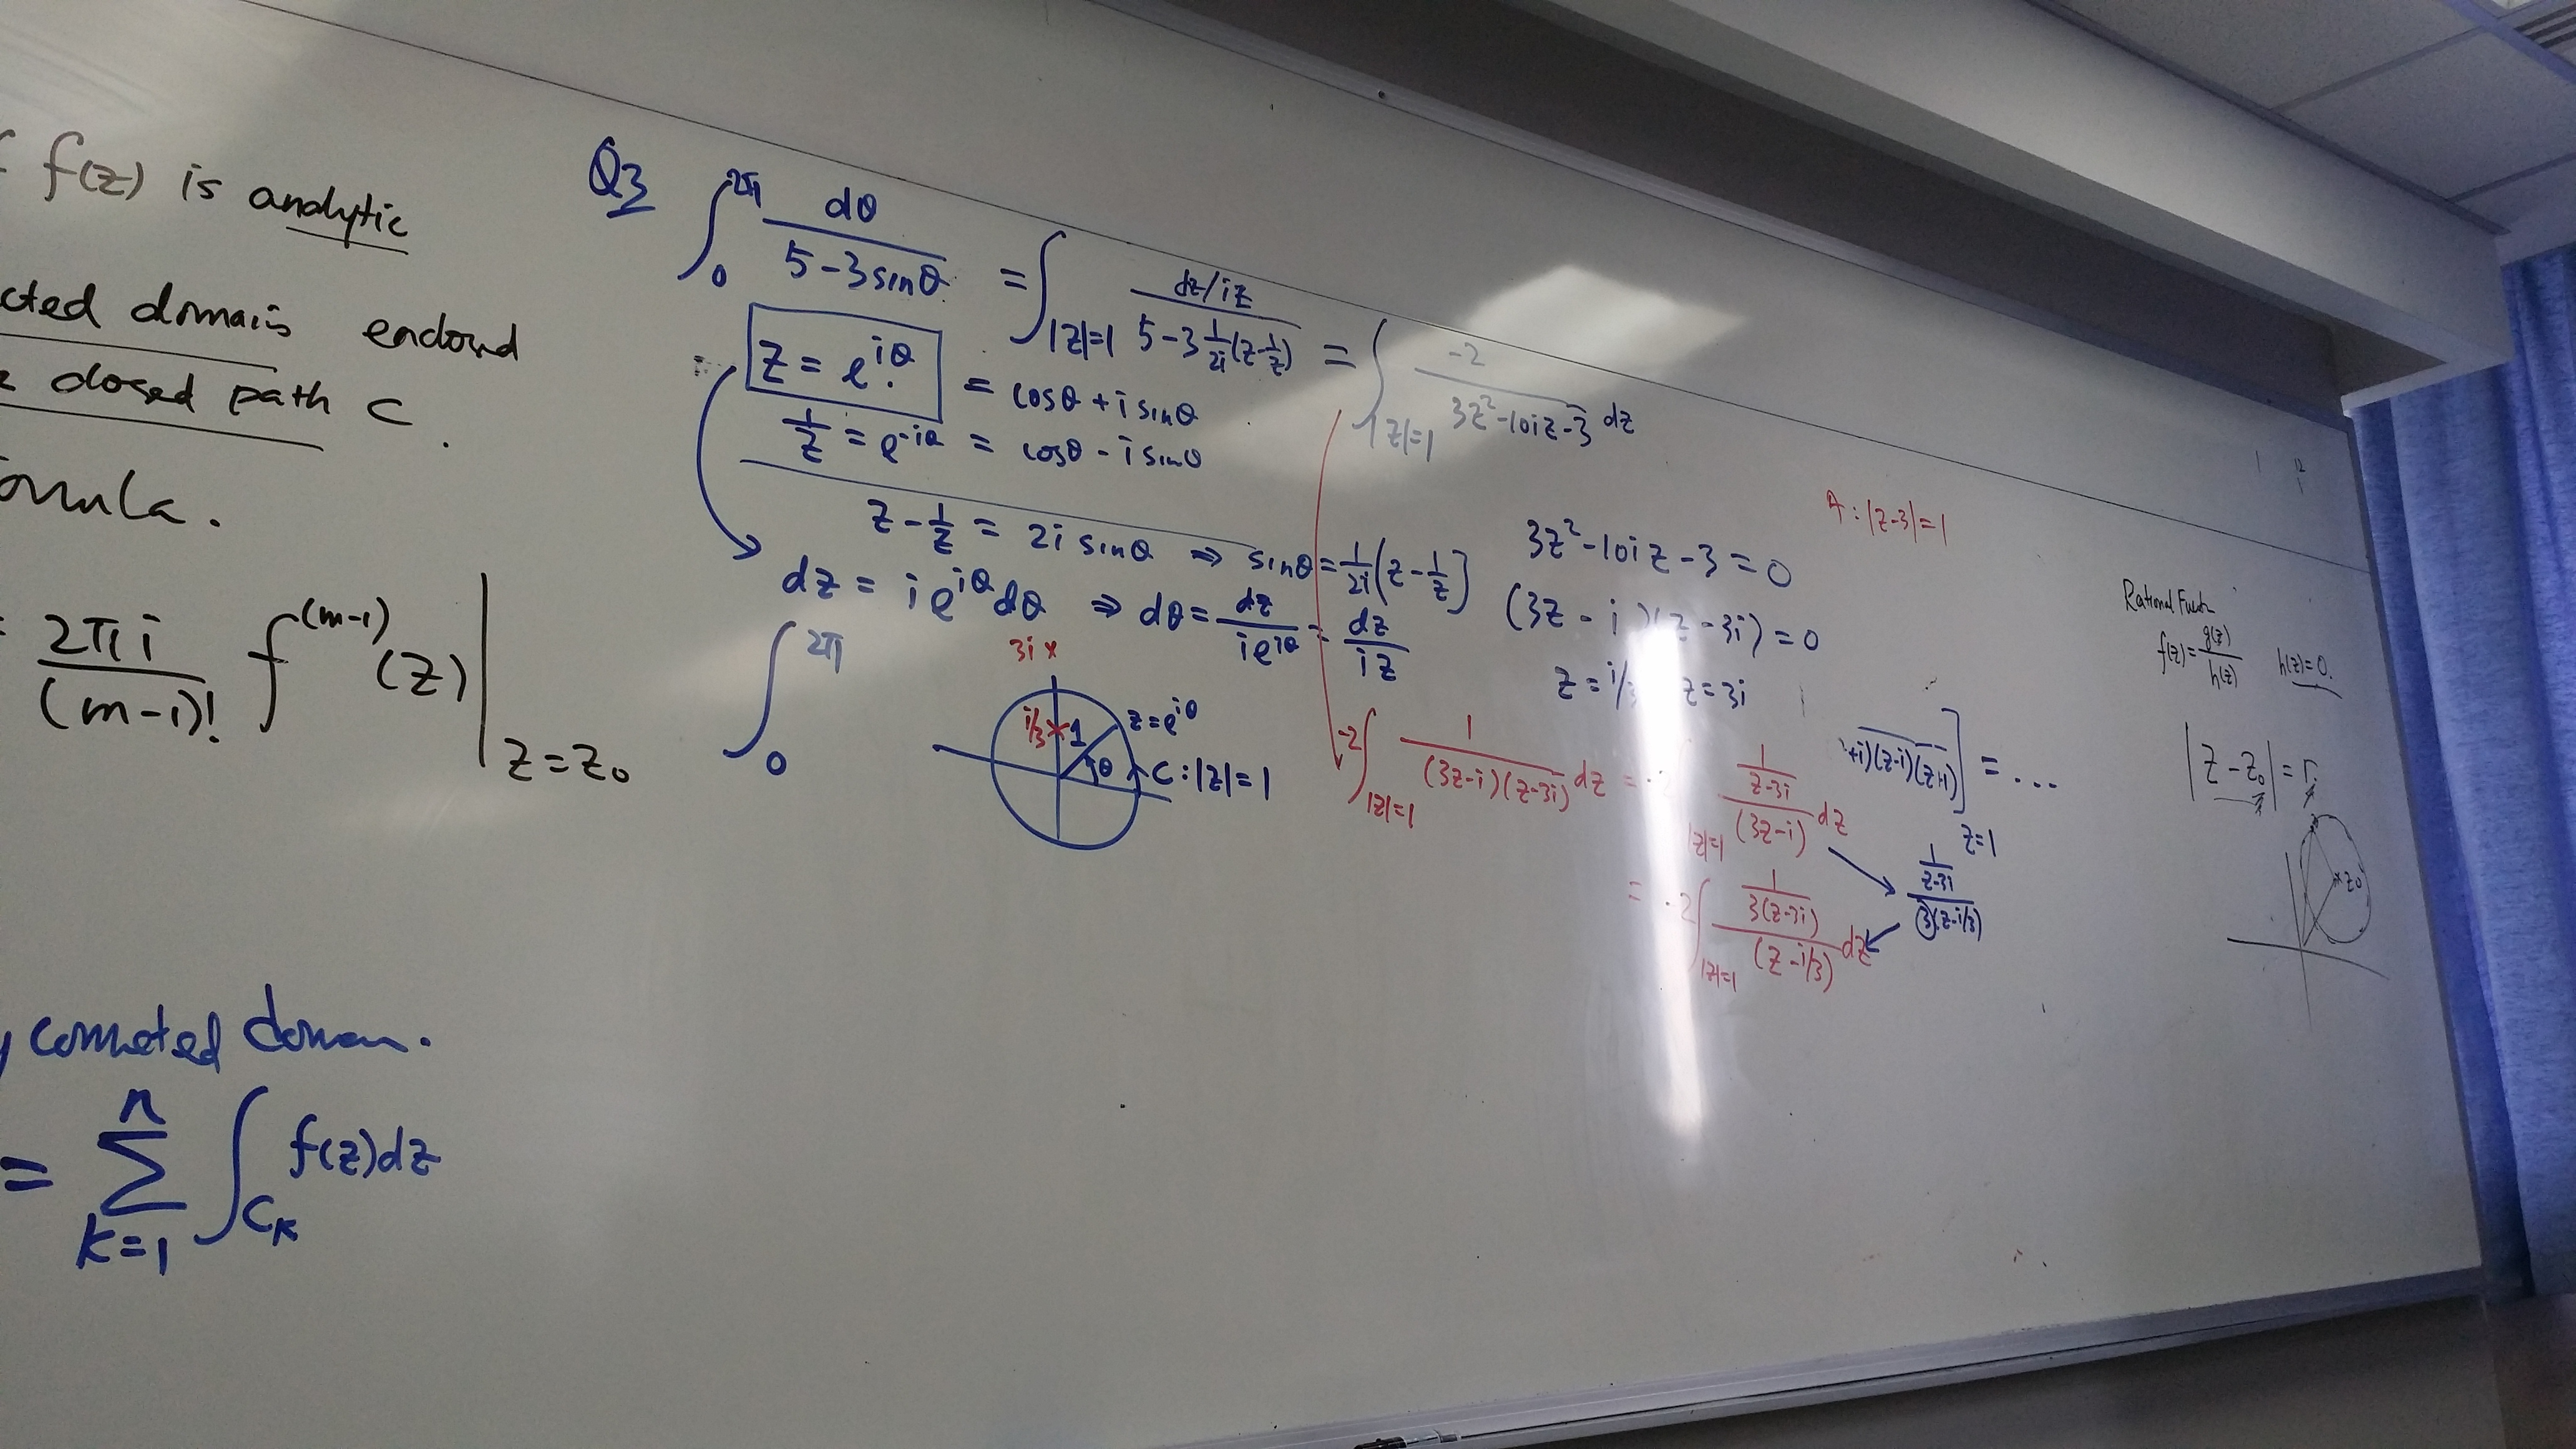 f(z) is analytic
cted domain enclosed
closed path C.
ormula.
= 2πi / (m-1)! f^(m-1)(z) | z=z₀
y connected domain.
= Σ_{k=1}^{n} ∫_{C_k} f(z)dz
Q3
∫_0^{2π} dθ / (5-3sinθ) = ∫_{|z|=1} (dz/iz) / (5-3 1/2i (z-1/z)) = ∫_{|z|=1} -2 / (3z²-10iz-3) dz
z = e^{iθ} = cosθ + i sinθ
1/z = e^{-iθ} = cosθ - i sinθ
z - 1/z = 2i sinθ ⇒ sinθ = 1/2i [z - 1/z]
dz = i e^{iθ} dθ ⇒ dθ = dz / ie^{iθ} = dz / iz
∫_0^{2π}
3i ×
i/3 × 1
z = e^{iθ}
θ
C : |z| = 1
3z² - 10iz - 3 = 0
(3z - i)(z - 3i) = 0
z = i/3 z = 3i
-2 ∫_{|z|=1} 1 / (3z-i)(z-3i) dz = -2 ∫_{|z|=1} (1/(z-3i)) / (3z-i) dz
= -2 ∫_{|z|=1} (1/3(z-3i)) / (z-i/3) dz
(1/(z-3i)) / 3(z-i/3)
+i)(z-i)(z+1) ] = ...
z=1
A : |z-3| = 1
Rational Functn
f(z) = g(z)/h(z) h(z) = 0.
|z - z₀| = r
× z₀